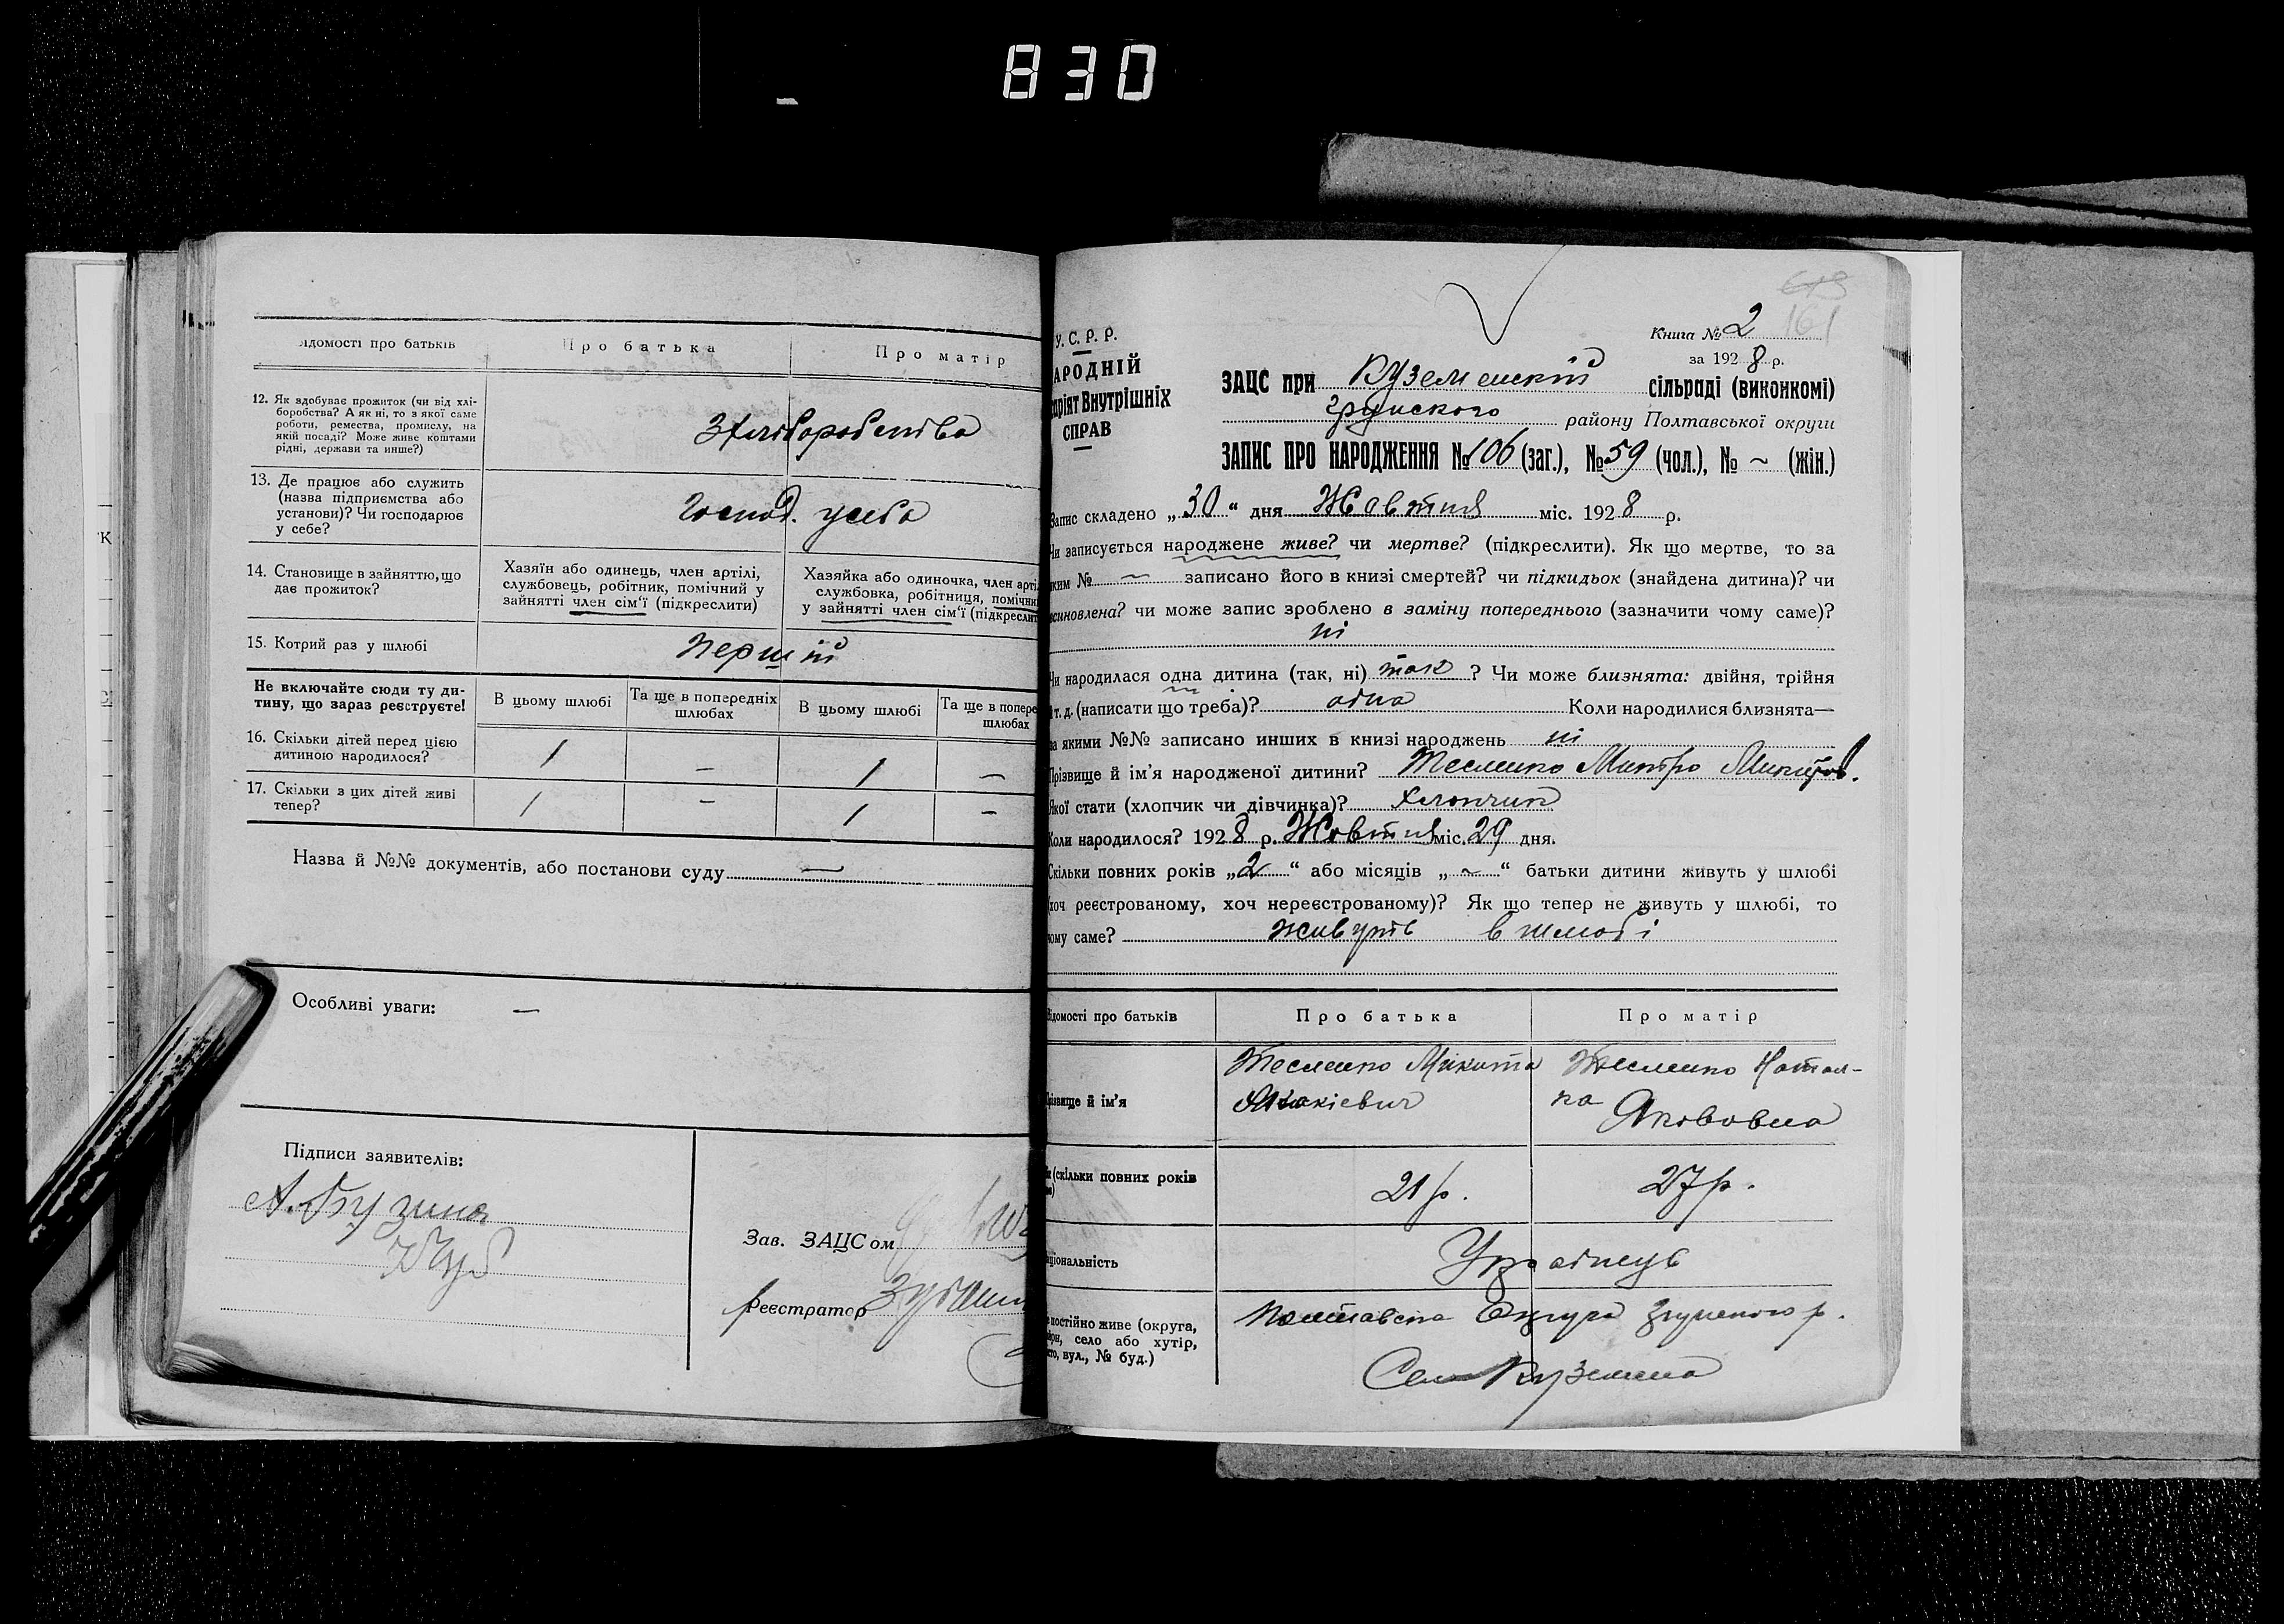 830
ідомості про батьків
Про батька
Про матір
12. Як здобуває прожиток (чи від хлі-
боробства? А як ні, то з якої саме
роботи, ремества, промислу, на
якій посаді? Може живе коштами
рідні, держави та инше?)
З хліборобства
13. Де працює або служить
(назва підприємства або
установи)? Чи господарює
у себе?
Господ. у себе
14. Становище в зайняттю, що
дає прожиток?
Хазяїн або одинець, член артілі,
службовець, робітник, помічний у
зайнятті член сім'ї (підкреслити)
Хазяйка або одиночка, член арті
службовка, робітниця, помічни
у зайнятті член сім'ї (підкресли
15. Котрий раз у шлюбі
Перший
Не включайте сюди ту ди-
тину, що зараз реєструєте!
В цьому шлюбі
Та ще в попередніх
шлюбах
В цьому шлюбі
Та ще в попере
шлюбах
16. Скільки дітей перед цією
дитиною народилося?
1 – 1 –
17. Скільки з цих дітей живі
тепер?
1 – 1 –
Назва й №№ документів, або постанови суду —
Особливі уваги: —
Підписи заявителів:
Зав. ЗАЦСом
Реєстратор
У. С. Р. Р.
АРОДНІЙ
ріят Внутрішніх
СПРАВ
161
Книга № 2
за 1928 р.
ЗАЦС при Куземенській сільраді (виконкомі)
Грунского району Полтавської округи
ЗАПИС ПРО НАРОДЖЕННЯ № 106 (заг.), № 59 (чол.), № ~ (жін.)
Запис складено „30“ дня Жовтня міс. 1928 р.
Чи записується народжене живе? чи мертве? (підкреслити). Як що мертве, то за
ким № ~ записано його в книзі смертей? чи підкидьок (знайдена дитина)? чи
всиновлена? чи може запис зроблено в заміну попереднього (зазначити чому саме)?
ні
Чи народилася одна дитина (так, ні) так ? Чи може близнята: двійня, трійня
і т. д. (написати що треба)? одна Коли народилися близнята—
за якими №№ записано инших в книзі народжень ні
Прізвище й ім'я народженої дитини? Тесленко Митро Микитов.
Якої стати (хлопчик чи дівчинка)? Хлопчик
Коли народилося? 1928 р. Жовтня міс. 29 дня.
Скільки повних років „2“ або місяців „~“ батьки дитини живуть у шлюбі
хоч реєстрованому, хоч нереєстрованому)? Як що тепер не живуть у шлюбі, то
чому саме? живуть в шлюбі
Відомості про батьків
Про батька
Про матір
різвище й ім'я
Тесленко Микита
Акакієвич
Тесленко Натал-
ка Якововна
(скільки повних років
21 р.
27 р.
ціональність
Украінець
постійно живе (округа,
село або хутір,
вул., № буд.)
Полтавска Округа Грунского р.
Село Куземена